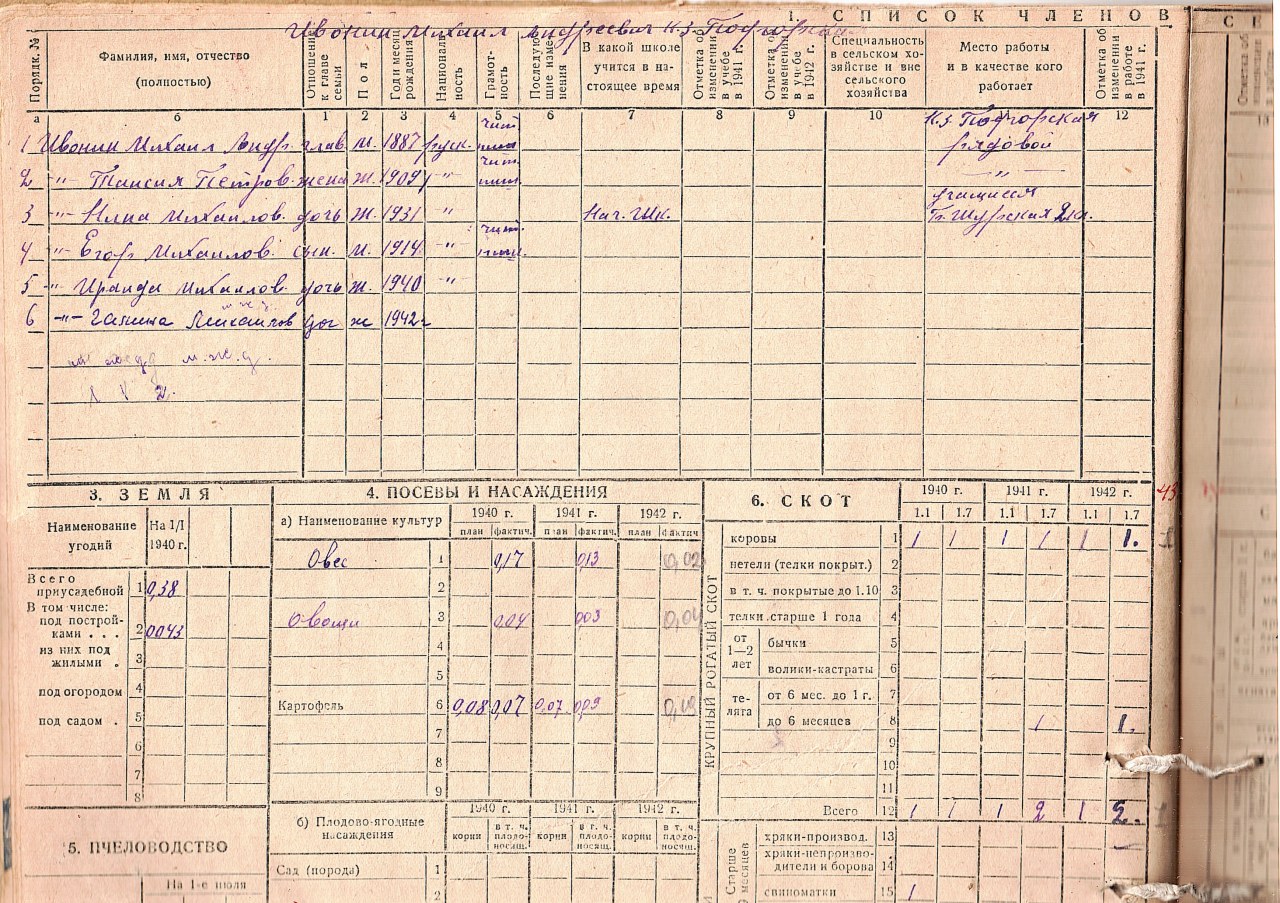 I. СПИСОК ЧЛЕНОВ
Ивонин Михаил Андреевич К-з Подгорская
Порядк. №
Фамилия, имя, отчество (полностью)
Отношение к главе семьи
Пол
Год и месяц рождения
Национальность
Грамотность
Последующие изменения
В какой школе учится в настоящее время
Отметка об изменении в учебе в 1941 г.
Отметка об изменении в учебе в 1942 г.
Специальность в сельском хозяйстве и вне сельского хозяйства
Место работы и в качестве кого работает
Отметка об изменении в работе в 1941 г.
а б 1 2 3 4 5 6 7 8 9 10 11 12
1 Ивонин Михаил Андр. глав. м. 1887 руск. чит. пиш. К-з Подгорская рядовой
2 -"- Таисия Петров. жена ж. 1909 -"- чит. пиш. -"-
3 -"- Михайлов. дочь ж. 1931 " Нач. Шк. учащиеся 2 кл.
4 -"- Егор Михайлов. сын. м. 1914 -"- чит. пиш.
5 -"- Ираида Михайлов. дочь ж. 1940 -"-
6 -"- Галина Михайлов доч ж 1942 г
м. ж. д.
1 V 2.
3. ЗЕМЛЯ
Наименование угодий На 1/I 1940 г.
Всего приусадебной 1 0,38
В том числе:
под постройками . . . 2 0043
из них под жилыми . 3
под огородом 4
под садом . 5
6
7
8
5. ПЧЕЛОВОДСТВО
На 1-е июля
4. ПОСЕВЫ И НАСАЖДЕНИЯ
а) Наименование культур 1940 г. 1941 г. 1942 г.
план фактич. план фактич. план фактич
Овес 1 0,17 0,13 0,02
2
Овощи 3 0,04 003 0,04
4
5
Картофель 6 0,08 0,07 0,07 0,09
7
8
9
б) Плодово-ягодные насаждения 1940 г. 1941 г. 1942 г.
корни в т. ч. плодоносящ. корни в т. ч. плодоносящ. корни в т. ч. плодоносящ.
Сад (порода) 1
2
6. СКОТ 1940 г. 1941 г. 1942 г.
1.1 1.7 1.1 1.7 1.1 1.7
43
КРУПНЫЙ РОГАТЫЙ СКОТ
коровы 1 1 1 1 1 1 1.
нетели (телки покрыт.) 2
в т. ч. покрытые до 1.10 3
телки старше 1 года 4
от 1—2 лет бычки 5
волики-кастраты 6
телята от 6 мес. до 1 г. 7
до 6 месяцев 8 1 1.
9
10
11
Всего 12 1 1 1 2 1 2.
Старше месяцев
хряки-производ. 13
хряки-непроизводители и борова 14
свиноматки 15 1